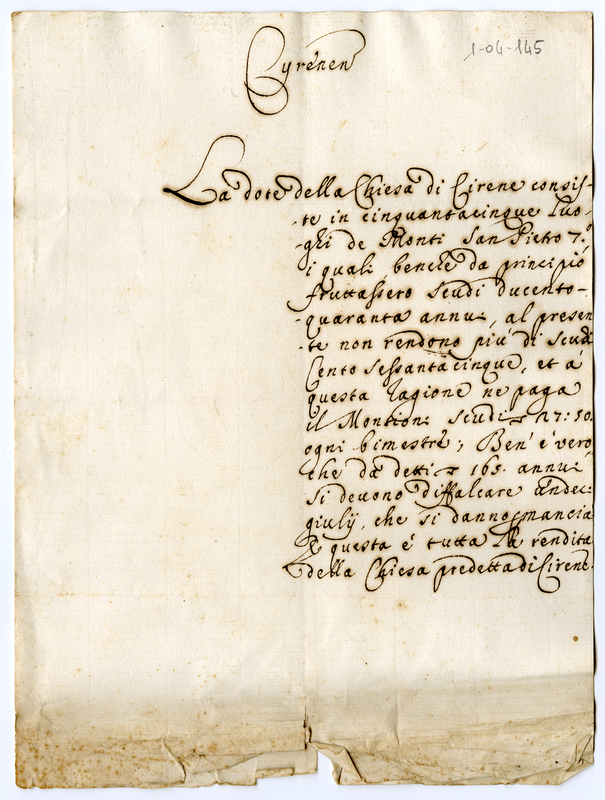 1-04-145
Cyrenen
La dote della Chiesa di Cirene consis-
-te in cinquantacinque Luo-
-ghi de Monti San Pietro 7.º
i quali, benche da principio
fruttassero scudi ducento-
-quaranta annui, al presen
-te non rendono più di scudi
Cento sessantacinque, et à
questa ragione ne paga
il Montion: scudi 27:50.
ogni bimestre; Ben' è vero
che da detti 165. annui
si devono diffalcare
giulij, che si danno mancia
E questa è tutta la rendita
della Chiesa predetta di Cirene.